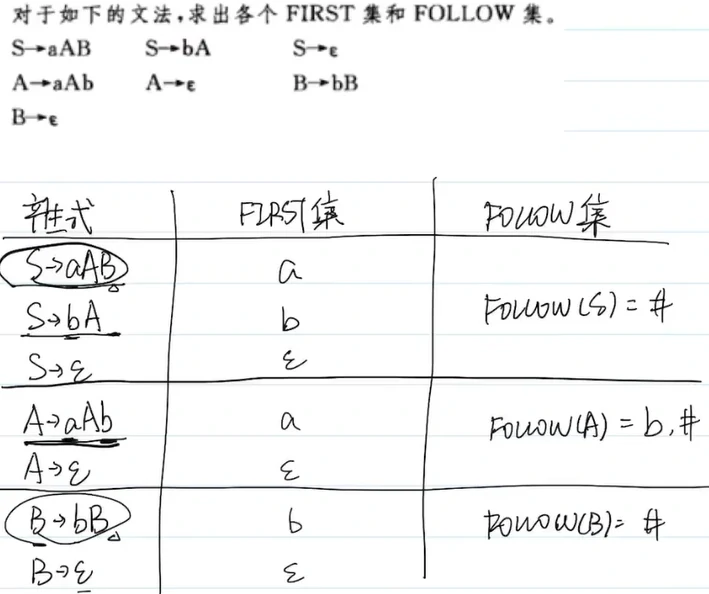 对于如下的文法,求出各个 FIRST 集和 FOLLOW 集。
S→aAB S→bA S→ε
A→aAb A→ε B→bB
B→ε
产生式 FIRST集 FOLLOW集
S→aAB a
S→bA b FOLLOW(S) = #
S→ε ε
A→aAb a FOLLOW(A) = b,#
A→ε ε
B→bB b FOLLOW(B)= #
B→ε ε